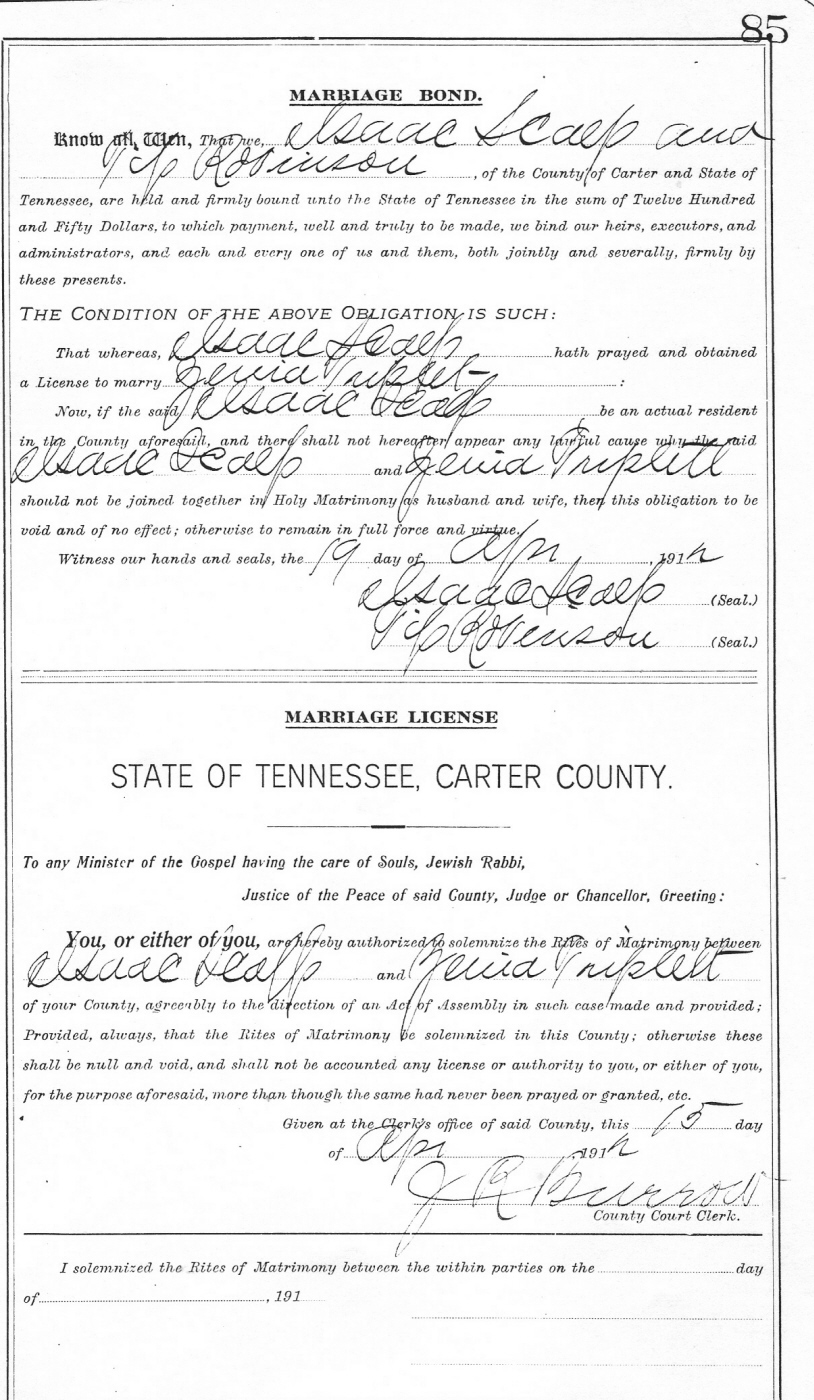 85
MARRIAGE BOND.
Know all Men, That we, Isaac Scalf and
Tip Robinson, of the County of Carter and State of
Tennessee, are held and firmly bound unto the State of Tennessee in the sum of Twelve Hundred
and Fifty Dollars, to which payment, well and truly to be made, we bind our heirs, executors, and
administrators, and each and every one of us and them, both jointly and severally, firmly by
these presents.
THE CONDITION OF THE ABOVE OBLIGATION IS SUCH:
That whereas, Isaac Scalf hath prayed and obtained
a License to marry Triplett :
Now, if the said Isaac Scalf be an actual resident
in the County aforesaid, and there shall not hereafter appear any lawful cause why the said
Isaac Scalf and Triplett
should not be joined together in Holy Matrimony as husband and wife, then this obligation to be
void and of no effect; otherwise to remain in full force and virtue.
Witness our hands and seals, the 19 day of Apr, 191
Isaac Scalf (Seal.)
Tip Robinson (Seal.)
MARRIAGE LICENSE
STATE OF TENNESSEE, CARTER COUNTY.
To any Minister of the Gospel having the care of Souls, Jewish Rabbi,
Justice of the Peace of said County, Judge or Chancellor, Greeting:
You, or either of you, are hereby authorized to solemnize the Rites of Matrimony between
Isaac Scalf and Triplett
of your County, agreeably to the direction of an Act of Assembly in such case made and provided;
Provided, always, that the Rites of Matrimony be solemnized in this County; otherwise these
shall be null and void, and shall not be accounted any license or authority to you, or either of you,
for the purpose aforesaid, more than though the same had never been prayed or granted, etc.
Given at the Clerk's office of said County, this 15 day
of Apr, 191
J R Burrow
County Court Clerk.
I solemnized the Rites of Matrimony between the within parties on the day
of , 191